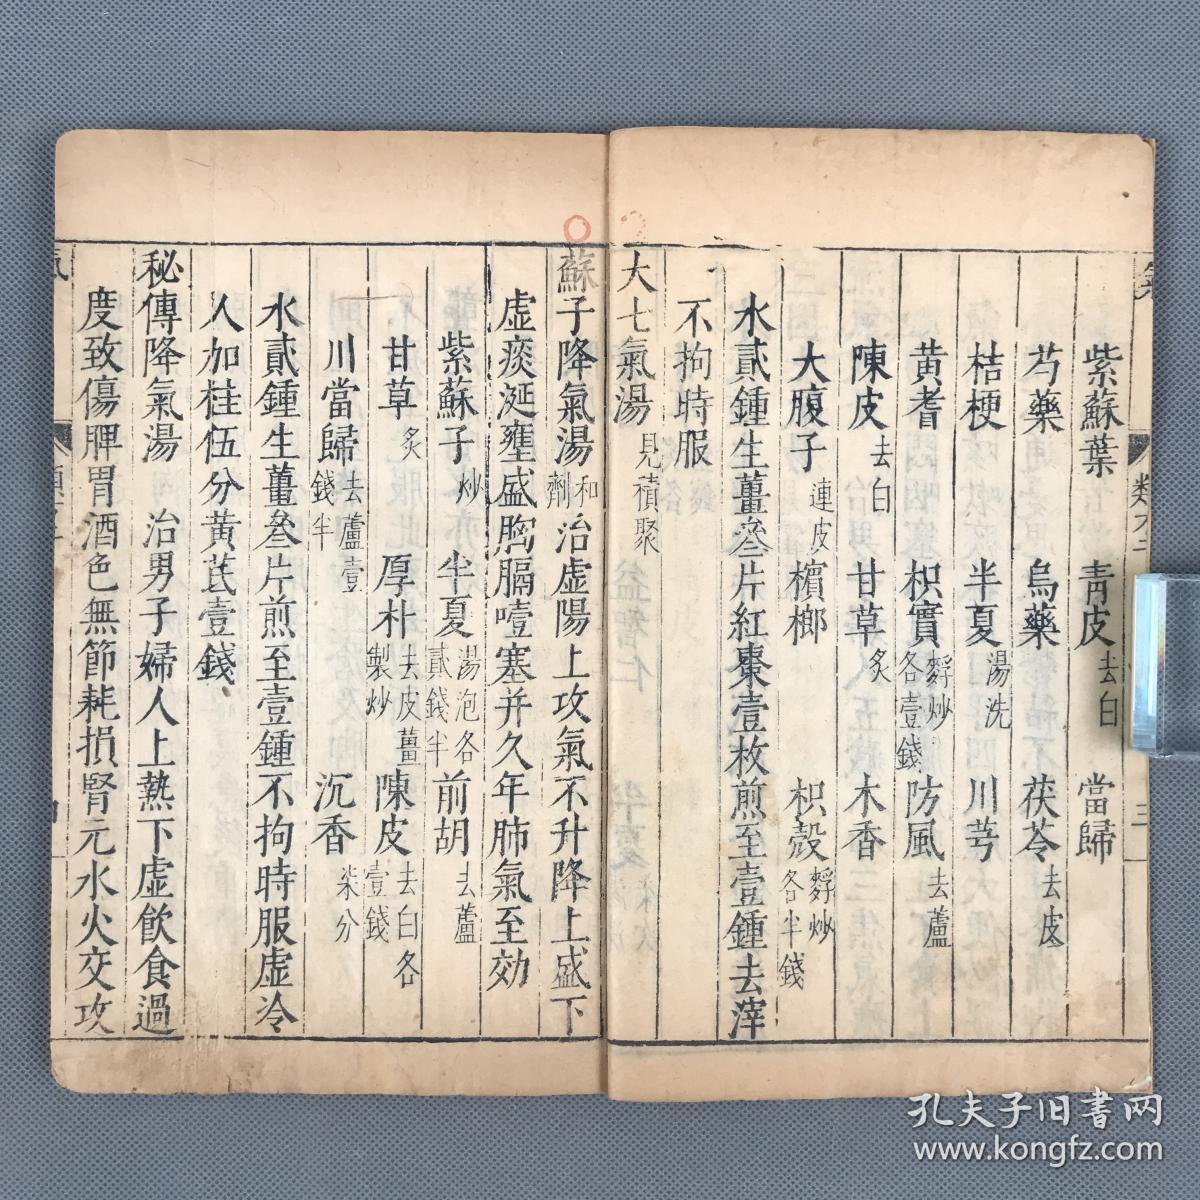 紫蘇葉 青皮去白 當歸
芍藥 烏藥 茯苓去皮
桔梗 半夏湯洗 川芎
黄耆 枳實麩炒各壹錢 防風去蘆
陳皮去白 甘草炙 木香
大腹子連皮 檳榔 枳殼麩炒各半錢
水貳鍾生薑叁片紅棗壹枚煎至壹鍾去滓
不拘時服
大七氣湯見積聚
蘇子降氣湯和劑 治虛陽上攻氣不升降上盛下
虛痰涎壅盛胸膈噎塞并久年肺氣至効
紫蘇子炒 半夏湯泡各貳錢半 前胡去蘆
甘草炙 厚朴去皮薑製炒 陳皮去白各壹錢
川當歸去蘆壹錢半 沉香柒分
水貳鍾生薑叁片煎至壹鍾不拘時服虛冷
人加桂伍分黄芪壹錢
秘傳降氣湯 治男子婦人上熱下虛飲食過
度致傷脾胃酒色無節耗損腎元水火交攻
孔夫子旧书网
www.kongfz.com